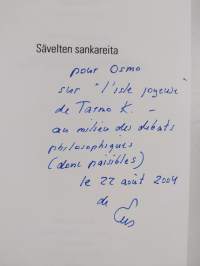 Sävelten sankareita
pour Osmo
sur "l'isle joyeuse"
de Tarmo K. –
au milieu des débats
philosophiques
(donc paisibles)
le 22 août 2004
de